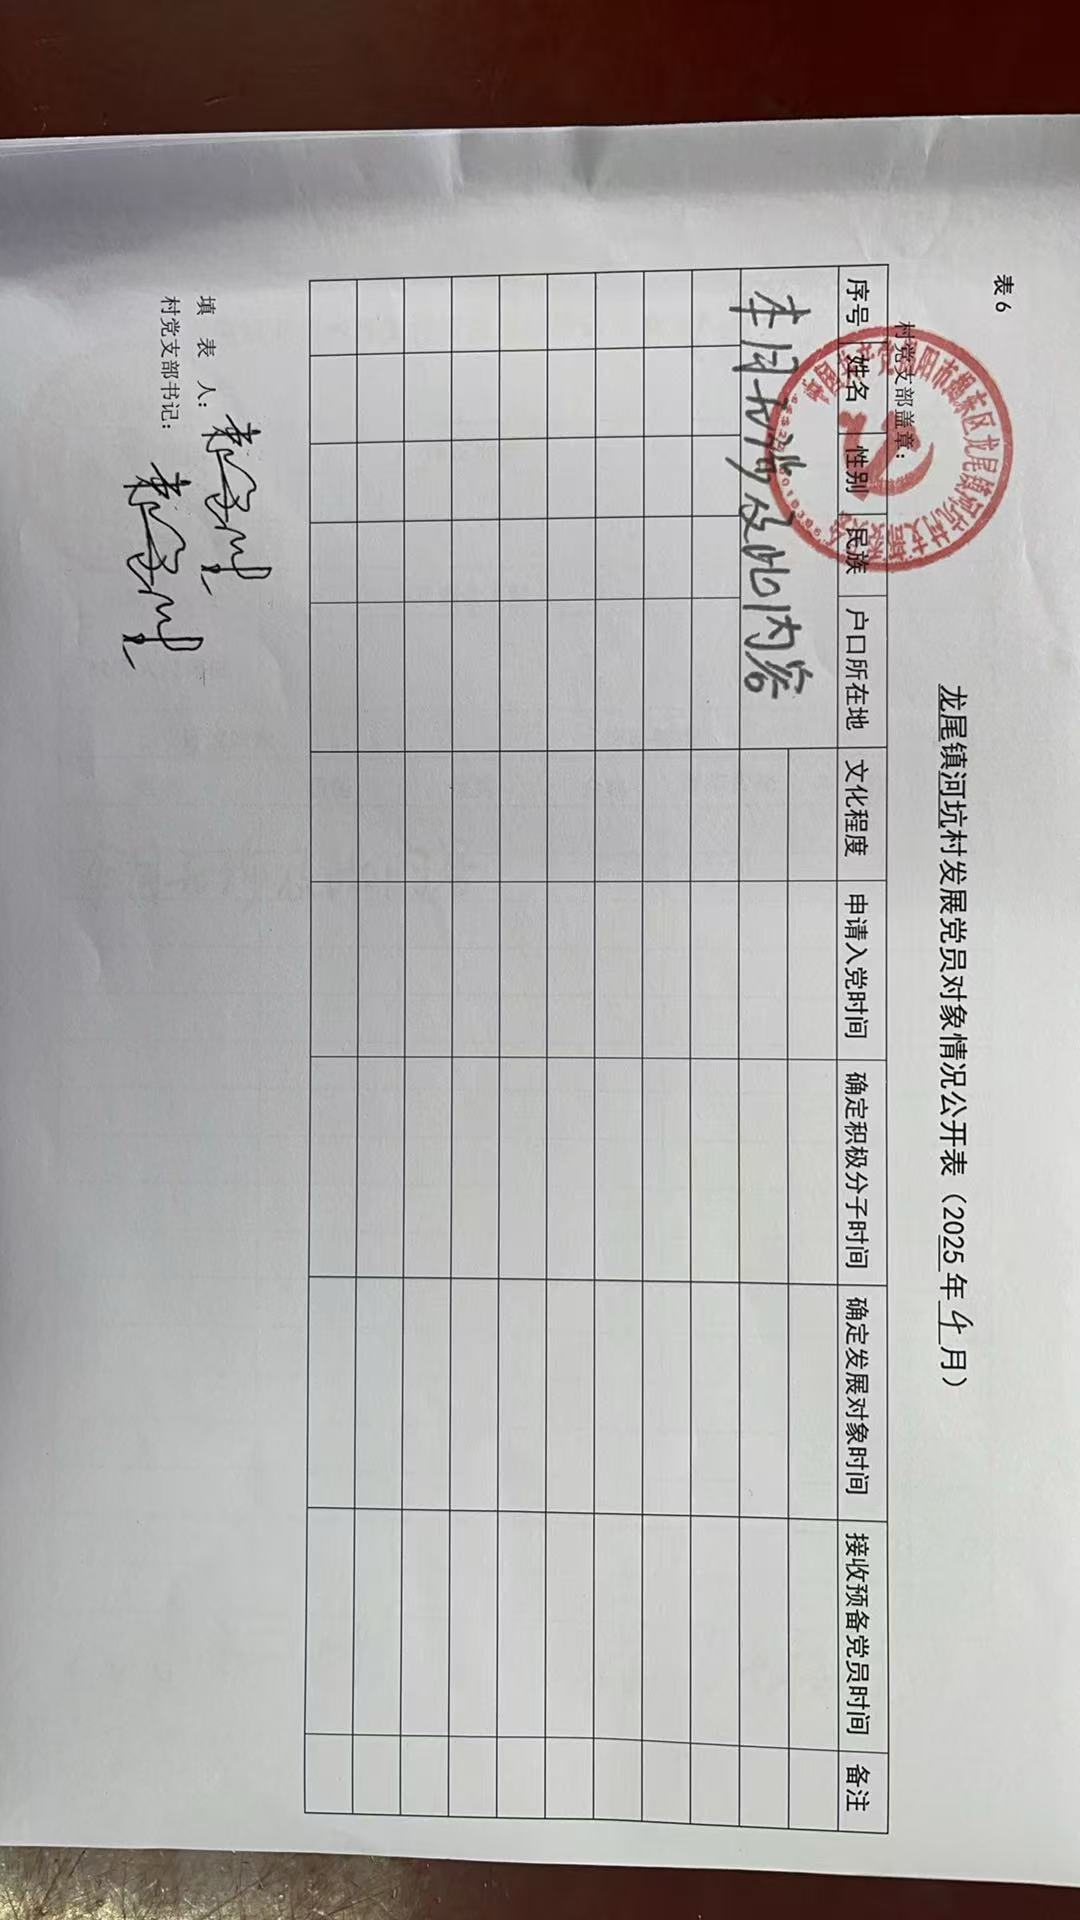 表6
龙尾镇河坑村发展党员对象情况公开表（2025年4月）
村党支部盖章：
序号 姓名 性别 民族 户口所在地 文化程度 申请入党时间 确定积极分子时间 确定发展对象时间 接收预备党员时间 备注
本月无涉及此内容
填表人：
村党支部书记：